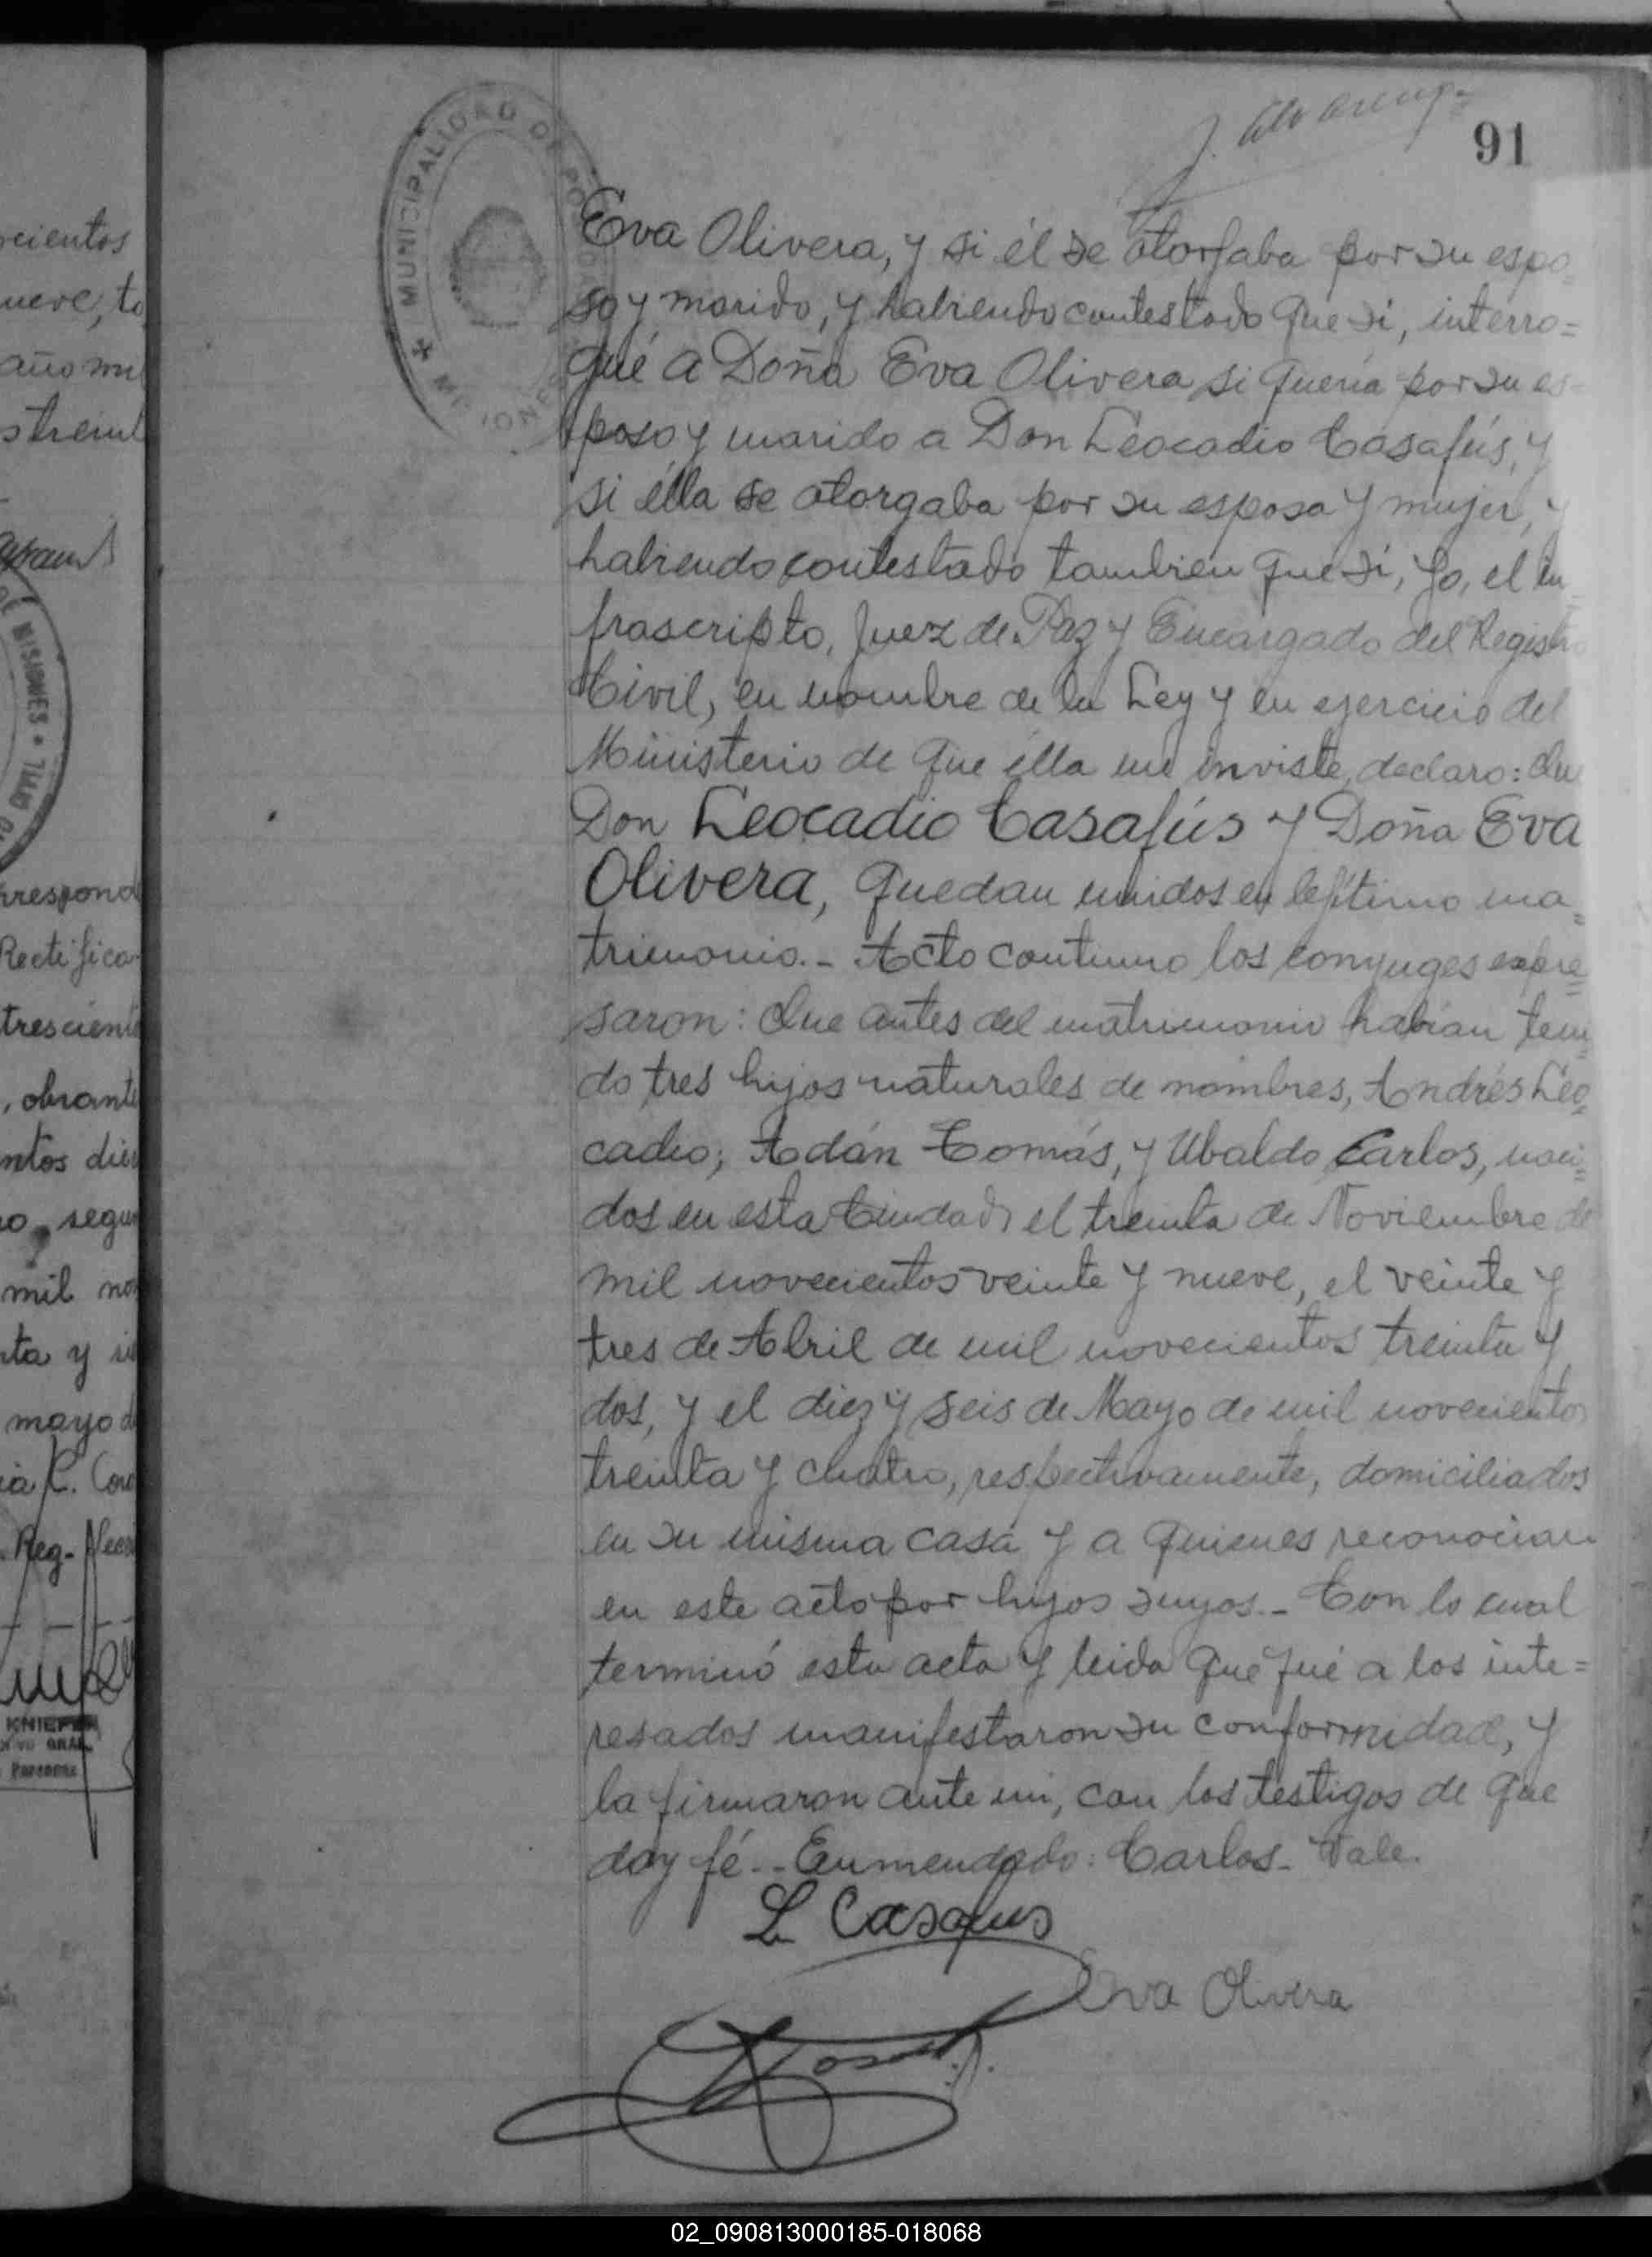 91
MUNICIPALIDAD DE POSADAS
MISIONES
Eva Olivera, y si él se otorgaba por su espo
so y marido, y habiendo contestado que si, interro=
gué a Doña Eva Olivera si quería por su es-
poso y marido a Don Leocadio Casafús, y
si élla se otorgaba por su esposa y mujer, y
habiendo contestado tambien que si, yo, el in=
frascripto, Juez de Paz y Encargado del Registro
Civil, en nombre de la Ley y en ejercicio del
Ministerio de que élla me inviste, declaro: Que
Don Leocadio Casafús y Doña Eva
Olivera, quedan unidos en legítimo ma=
trimonio.- Acto continuo los conyuges expre=
saron: Que antes del matrimonio habían teni=
do tres hijos naturales de nombres, Andrés Leo=
cadio; Adán Tomás, y Ubaldo Carlos, naci=
dos en esta Ciudad, el treinta de Noviembre de
mil novecientos veinte y nueve, el veinte y
tres de Abril de mil novecientos treinta y
dos, y el diez y seis de Mayo de mil novecientos
treinta y cuatro, respectivamente, domiciliados
en su misma casa y a quienes reconocian
en este acto por hijos suyos.- Con lo cual
terminó esta acta y leida que fué a los inte=
resados manifestaron su conformidad, y
la firmaron ante mi, con los testigos de que
doy fé.- Enmendado: Carlos- Vale.
L Casafus
Eva Olivera
recientos
nueve, to
año mi
treint
DE MISIONES
rrespond
Rectifica
trescient
, obrante
ntos diec
o, segun
mil no
nta y si
mayo d
ia R. Coro
Reg-
KNIEPER
GRAL.
02_090813000185-018068